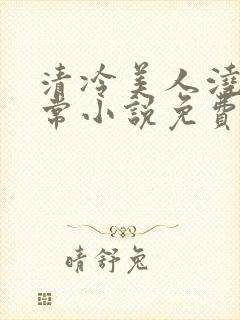 清冷美人澆
常小說免費
晴舒兔